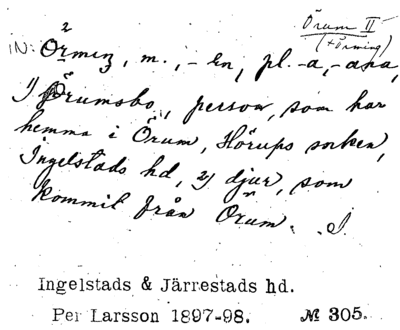 Örum II
(+örming)
IN: Örmiŋ, m., -en, pl. -a, -ana,
1) Örumsbo, person, som har
hemma i Örum, Hörups socken,
Ingelstads hd, 2) djur, som
kommit från Örum. I.
Ingelstads & Järrestads hd.
Per Larsson 1897-98. № 305.